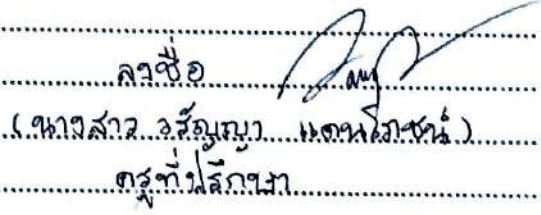 ลงชื่อ
(นางสาว อรัญญา แดนโภชน์)
ครูที่ปรึกษา